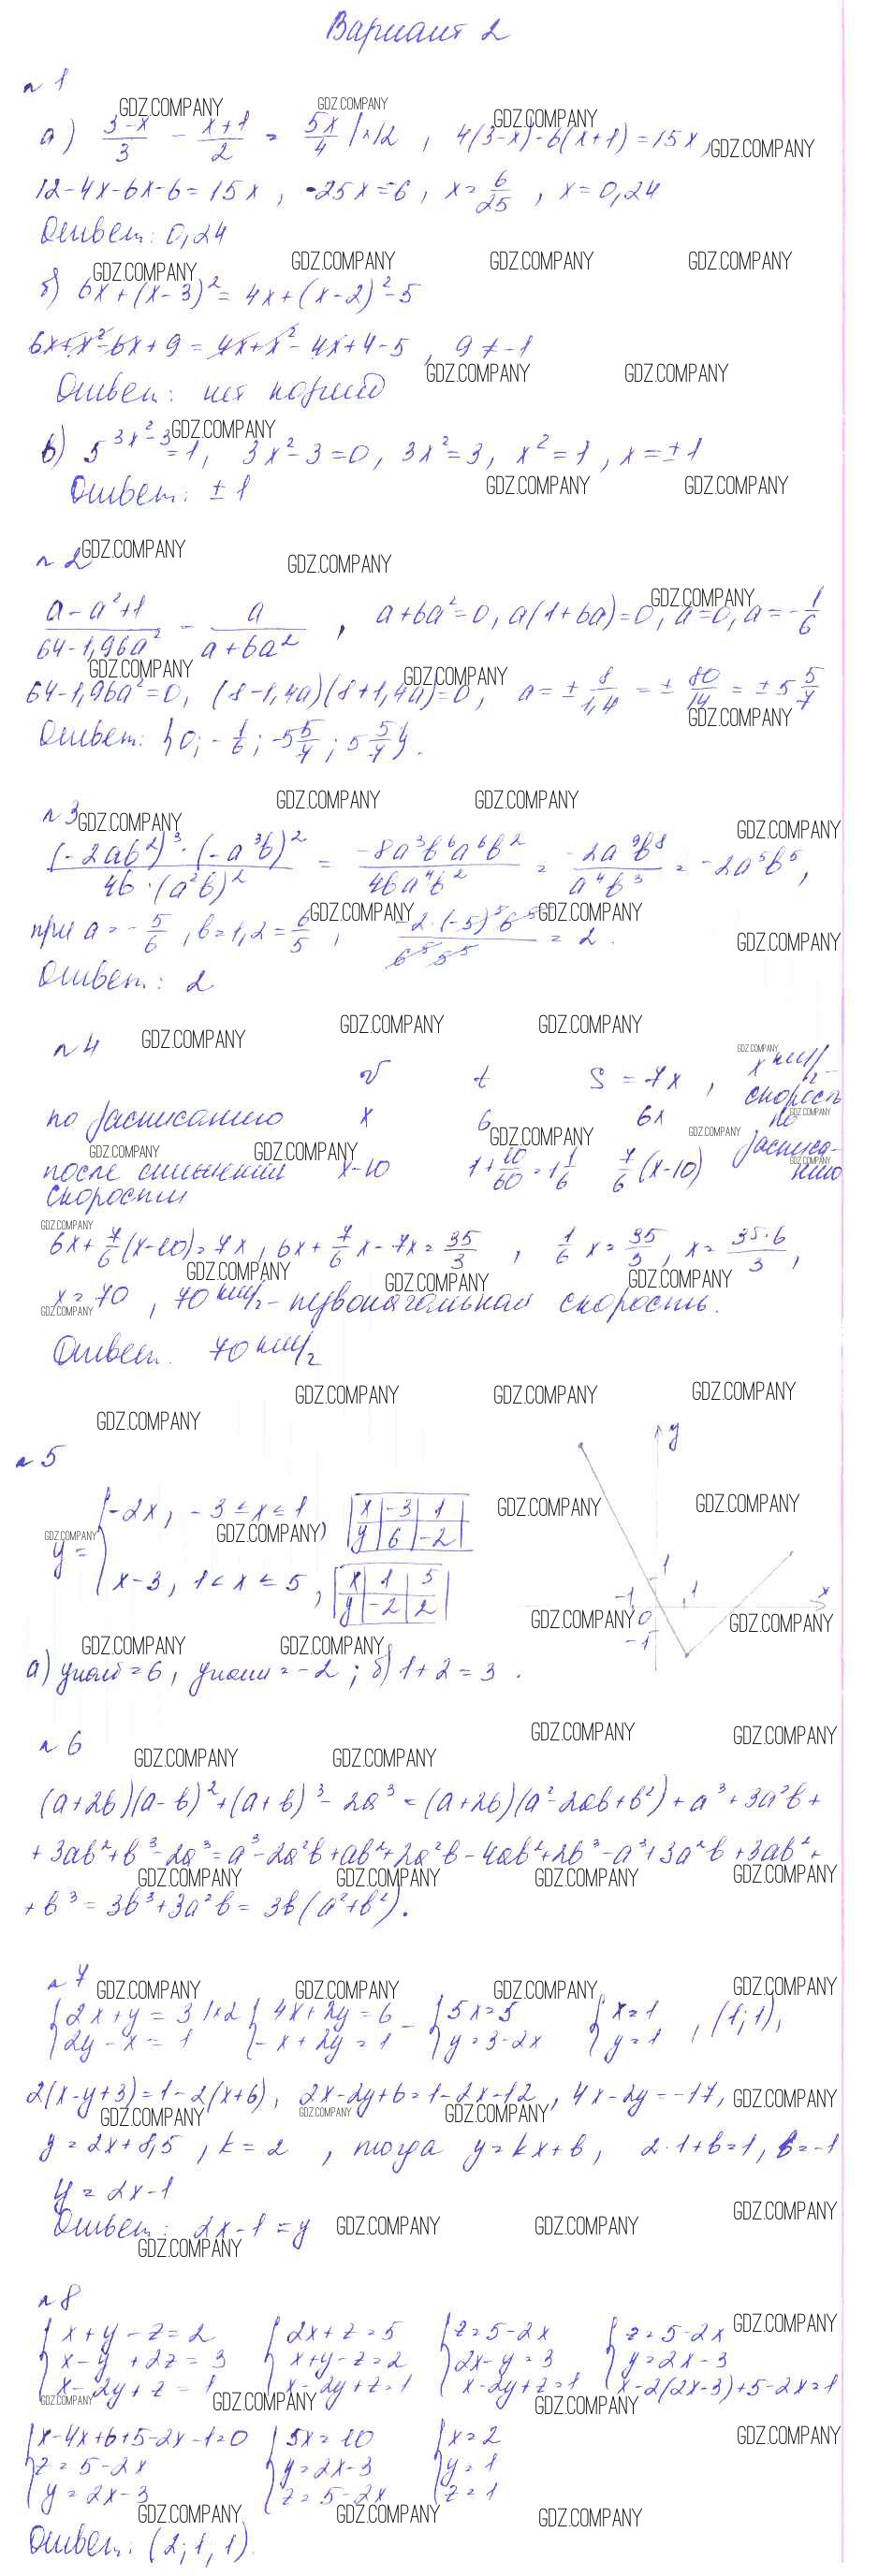 Вариант 2
N 1
а) (3-x)/3 - (x+1)/2 = 5x/4 |×12, 4(3-x)-6(x+1)=15x,
12-4x-6x-6=15x, -25x=-6, x=6/25, x=0,24
Ответ: 0,24
б) 6x+(x-3)²=4x+(x-2)²-5
6x+x²-6x+9=4x+x²-4x+4-5, 9≠-1
Ответ: нет корней
в) 5^(3x²-3)=1, 3x²-3=0, 3x²=3, x²=1, x=±1
Ответ: ±1
N 2
(a-a²+1)/(64-1,96a²) - a/(a+6a²), a+6a²=0, a(1+6a)=0, a=0, a=-1/6
64-1,96a²=0, (8-1,4a)(8+1,4a)=0, a=±8/1,4=±80/14=±5 5/7
Ответ: {0; -1/6; -5 5/7; 5 5/7}.
N 3
((-2ab²)³·(-a³b)²)/(4b·(a²b)²) = (-8a³b⁶a⁶b²)/(4ba⁴b²) = (-2a⁹b⁸)/(a⁴b³) = -2a⁵b⁵,
при a=-5/6, b=1,2=6/5, (-2·(-5)⁵6⁵)/(6⁵5⁵) = 2.
Ответ: 2
N 4
v t S = 7x, x км/г - скорость по расписанию
по расписанию x 6 6x
после снижения скорости x-10 1+10/60=1 1/6 7/6(x-10)
6x+7/6(x-10)=7x, 6x+7/6x-7x=35/3, 1/6x=35/3, x=35·6/3,
x=70, 70 км/г - первоначальная скорость.
Ответ. 70 км/г
N 5
y= { -2x, -3≤x≤1, x -3 1 y 6 -2
x-3, 1<x≤5, x 1 5 y -2 2
y
1
-1 0 1 x
-1
а) yнаиб=6, yнаим=-2; б) 1+2=3.
N 6
(a+2b)(a-b)²+(a+b)³-2a³=(a+2b)(a²-2ab+b²)+a³+3a²b+
+3ab²+b³-2a³=a³-2a²b+ab²+2a²b-4ab²+2b³-a³+3a²b+3ab²+
+b³=3b³+3a²b=3b(a²+b²).
N 7
{2x+y=3 |×2 {4x+2y=6 - {5x=5 {x=1
{2y-x=1 {-x+2y=1 {y=3-2x {y=1, (1;1),
2(x-y+3)=1-2(x+6), 2x-2y+6=1-2x-12, 4x-2y=-17,
y=2x+8,5, k=2, тогда y=kx+b, 2·1+b=1, b=-1
y=2x-1
Ответ: 2x-1=y
N 8
{x+y-z=2 {2x+z=5 {z=5-2x {z=5-2x
{x-y+2z=3 {x+y-z=2 {2x-y=3 {y=2x-3
{x-2y+z=1 {x-2y+z=1 {x-2y+z=1 {x-2(2x-3)+5-2x=1
{x-4x+6+5-2x-1=0 {5x=10 {x=2
{z=5-2x {y=2x-3 {y=1
{y=2x-3 {z=5-2x {z=1
Ответ: (2;1;1).
GDZ.COMPANY